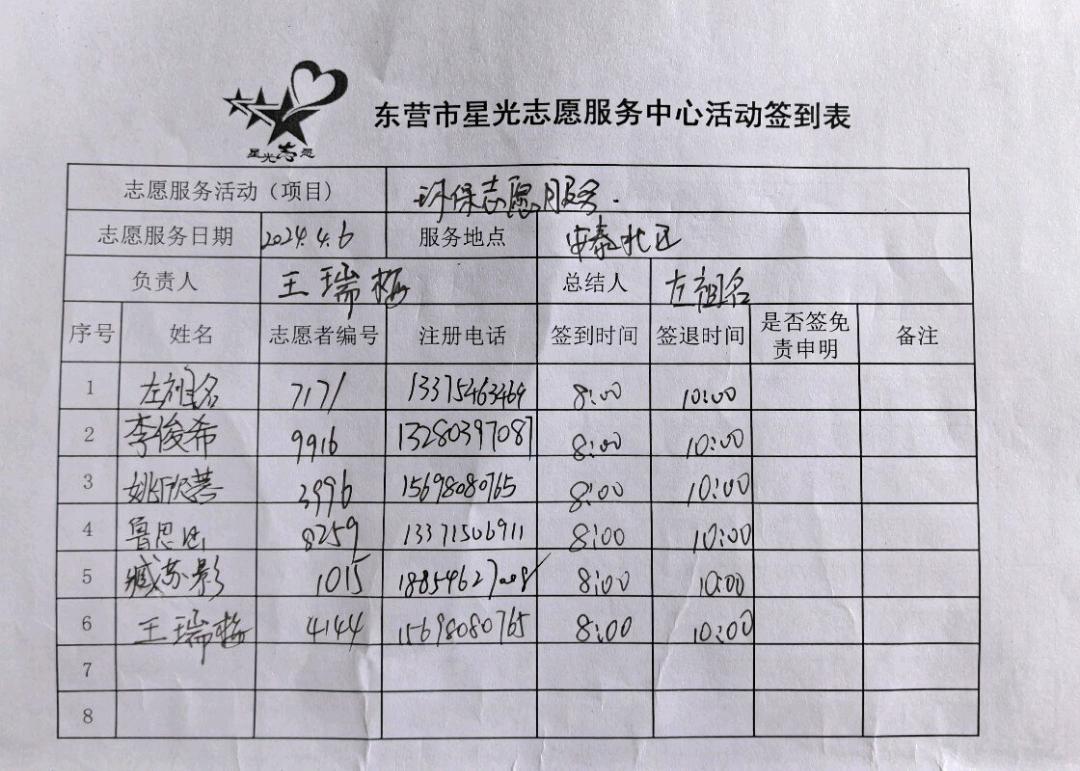 星光志愿
东营市星光志愿服务中心活动签到表
志愿服务活动（项目） 环保志愿服务.
志愿服务日期 2024.4.6 服务地点 安泰北区
负责人 王瑞梅 总结人 左祖名
序号 姓名 志愿者编号 注册电话 签到时间 签退时间 是否签免责申明 备注
1 左祖名 7171 13375463469 8:00 10:00
2 李俊希 9916 13280397087 8:00 10:00
3 姚欣 3996 15698080765 8:00 10:00
4 鲁思 8259 13371506911 8:00 10:00
5 臧苏影 1015 8:00 10:00
6 王瑞梅 4144 15698080765 8:00 10:00
7
8